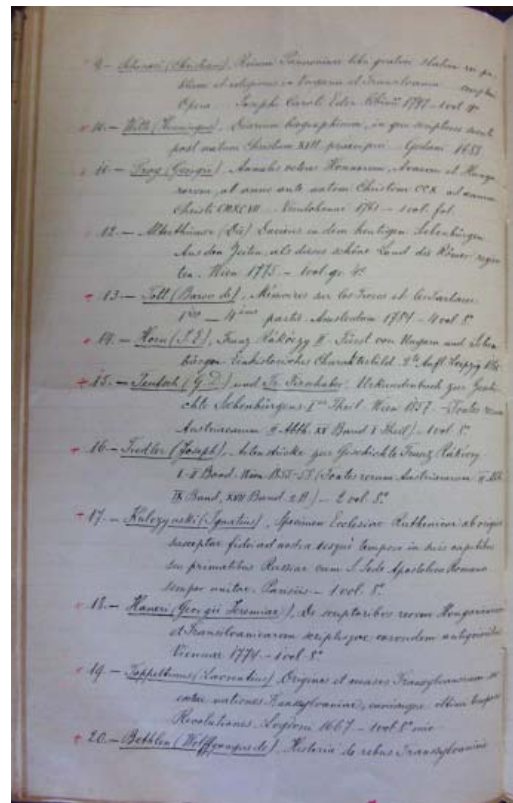 9 - (Christian). Rerum Pannonicarum libri quatuor statum rei pu-
blicae et religionis in Ungaria et Transilvania
Opera Josephi Caroli Eder. 1797 - 1 vol. 8º
10. - Witte (Henningus). Diarium biographicum, in quo scriptores
post natum Christum XVII praecipui. Gedani 1688
11. - Pray (Georgii). Annales veteres Hunnorum, Avarum et Hunga-
rorum, ab anno ante natum Christum CCX ad annum
Christi CMXCVII. Vindobonae 1761 - 1 vol. fol.
12. - Alterthümer (Die) Daciens in dem heutigen Siebenbürgen
Aus den Zeiten, als dieses schöne Land die Römer regier-
ten. Wien 1775 - 1 vol. gr. 4º
13. - Tott (Baron de). Mémoires sur les Turcs et les Tartares
1ère - 4ème partie. Amsterdam 1784 - 4 vol. 8º
14. - Horn (I. E). Franz Rákóczy II. Fürst von Ungarn und Sieben-
bürgen. Ein historisches Charakterbild. 2te Aufl. Leipzig
15. - Teutsch (G. D.) und Fr. Firnhaber. Urkundenbuch zur Geschi-
chte Siebenbürgens. I Theil. Wien 1857. (Fontes rerum
Austriacarum II Abth. XV Band I Theil) - 1 vol. 8º
16. - Fiedler (Joseph). Actenstücke zur Geschichte Franz Rákóczy
I-II Band. Wien 1855-58 (Fontes rerum Austriacarum II Abth
IX Band, XVII Band 2 B.) - 2 vol. 8º
17. - Kulczynski (Ignatius). Specimen Ecclesiae Ruthenicae ab origine
susceptae fidei ad nostra usque tempora in suis capitibus
seu primatibus Russiae cum S. Sede Apostolica Romana
semper unitae. Parisiis - 1 vol. 8º
18. - Haneri (Georgii Jeremiae). De scriptoribus rerum Hungaricarum
et Transilvanicarum scriptisque eorundem antiquioribus
Viennae 1774 - 1 vol. 8º
19. - Toppeltinus (Laurentius). Origines et occasus Transylvanorum seu
erutae nationes Transylvaniae, earumque ultimi temporis
Revolutiones. Lugduni 1667 - 1 vol. 8º
20. - Bethlen (Wolffgangus de). Historia de rebus Transsylvanicis